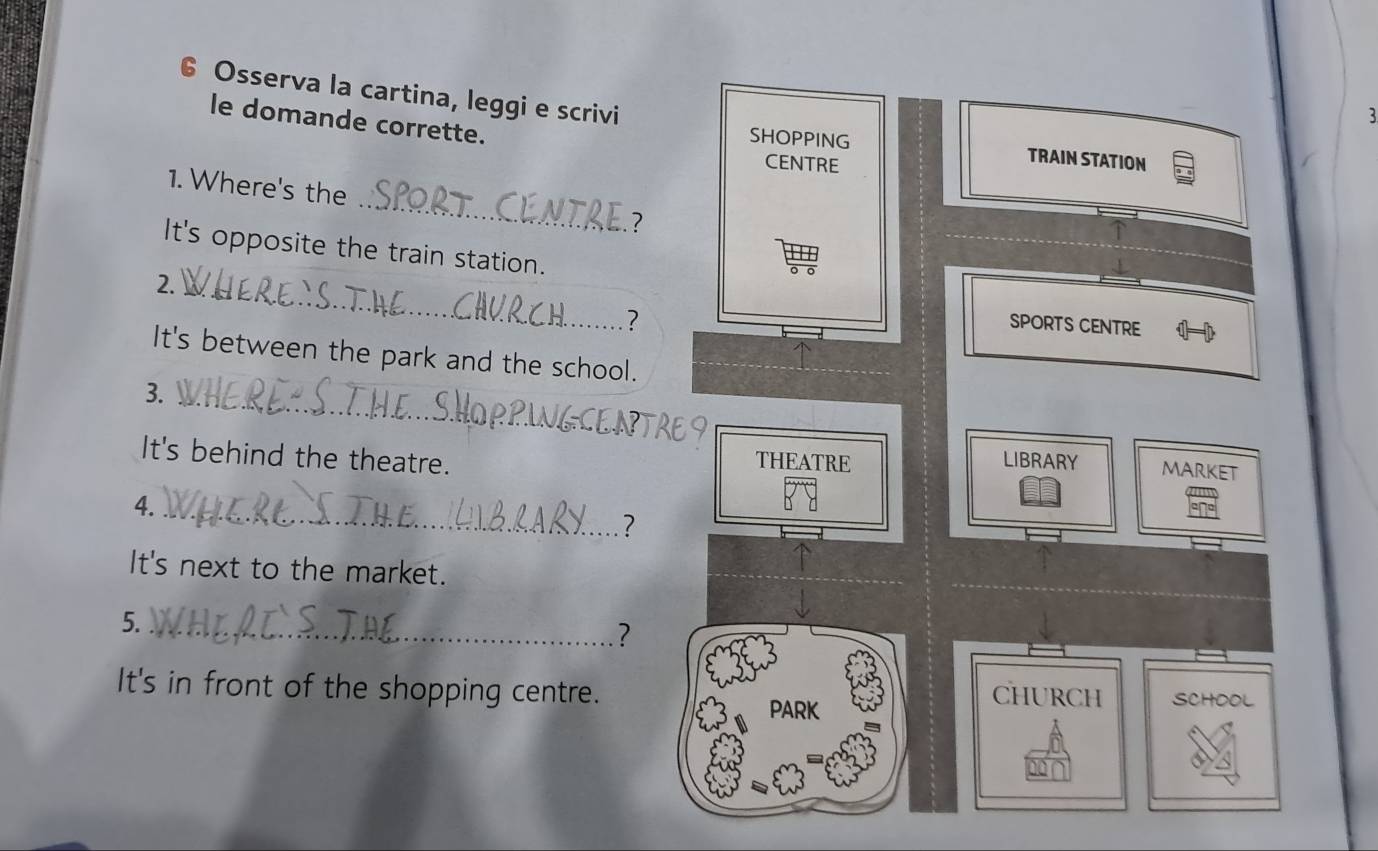 6 Osserva la cartina, leggi e scrivi
le domande corrette.
1. Where's the SPORT CENTRE ?
It's opposite the train station.
2. WHERE'S THE CHURCH ?
It's between the park and the school.
3. WHERE'S THE SHOPPING CENTRE?
It's behind the theatre.
4. WHERE'S THE LIBRARY ?
It's next to the market.
5. WHERE'S THE ?
It's in front of the shopping centre.
SHOPPING
CENTRE
TRAIN STATION
SPORTS CENTRE
THEATRE
LIBRARY
MARKET
PARK
CHURCH
SCHOOL
3